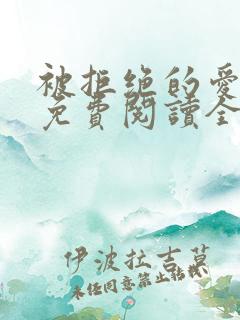 被拒绝的愛
免費閱讀全
伊波拉吉莫
未经同意禁止转载